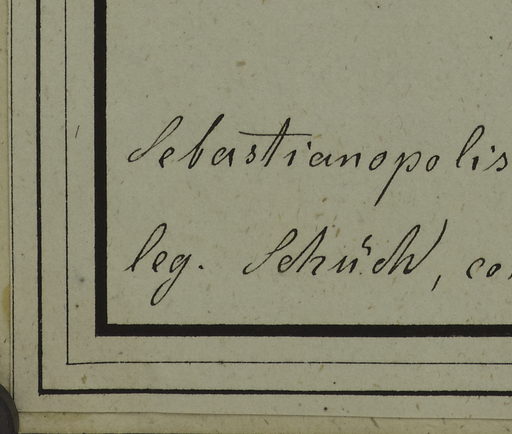 Sebastianopolis
leg. Schüch, co